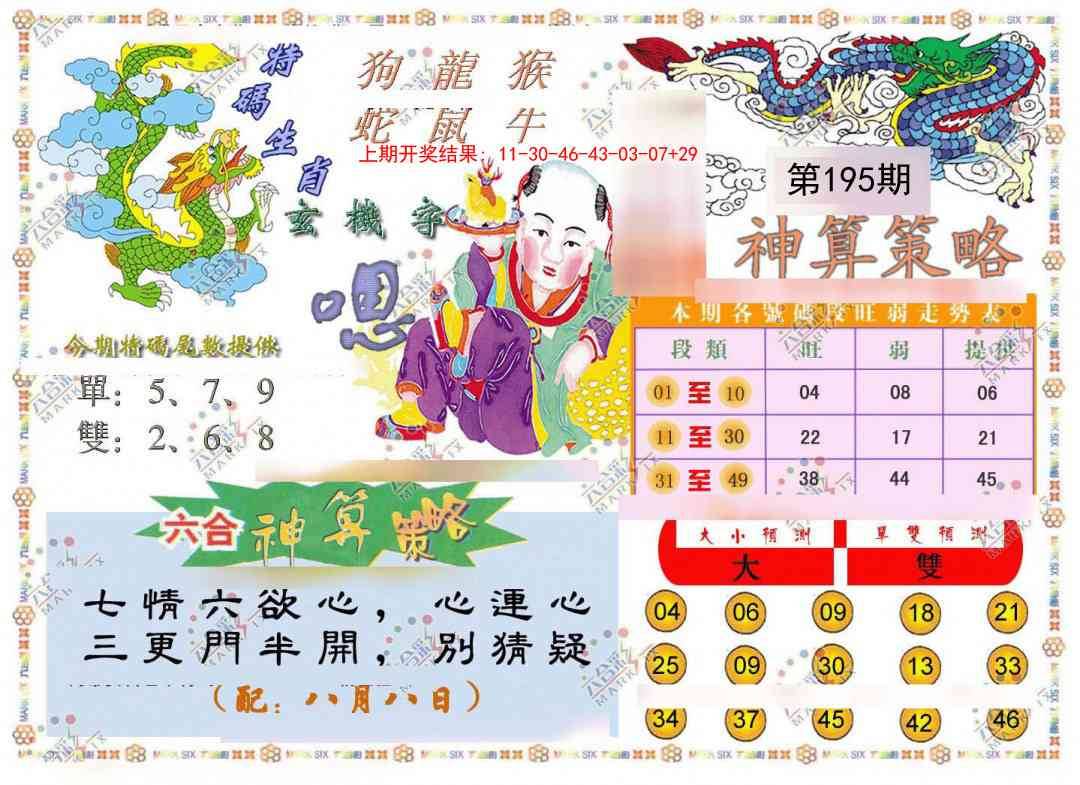 特碼生肖
狗 龍 猴
蛇 鼠 牛
上期开奖结果：11-30-46-43-03-07+29
第195期
神算策略
玄機字
嗯
今期特碼尾數提供
單：5、7、9
雙：2、6、8
本期各號碼段旺弱走勢表
段類 旺 弱 提供
01 至 10 04 08 06
11 至 30 22 17 21
31 至 49 38 44 45
六合 神算策略
七情六欲心，心連心
三更門半開，別猜疑
（配：八月八日）
大小預測 單雙預測
大 雙
04 06 09 18 21
25 09 30 13 33
34 37 45 42 46